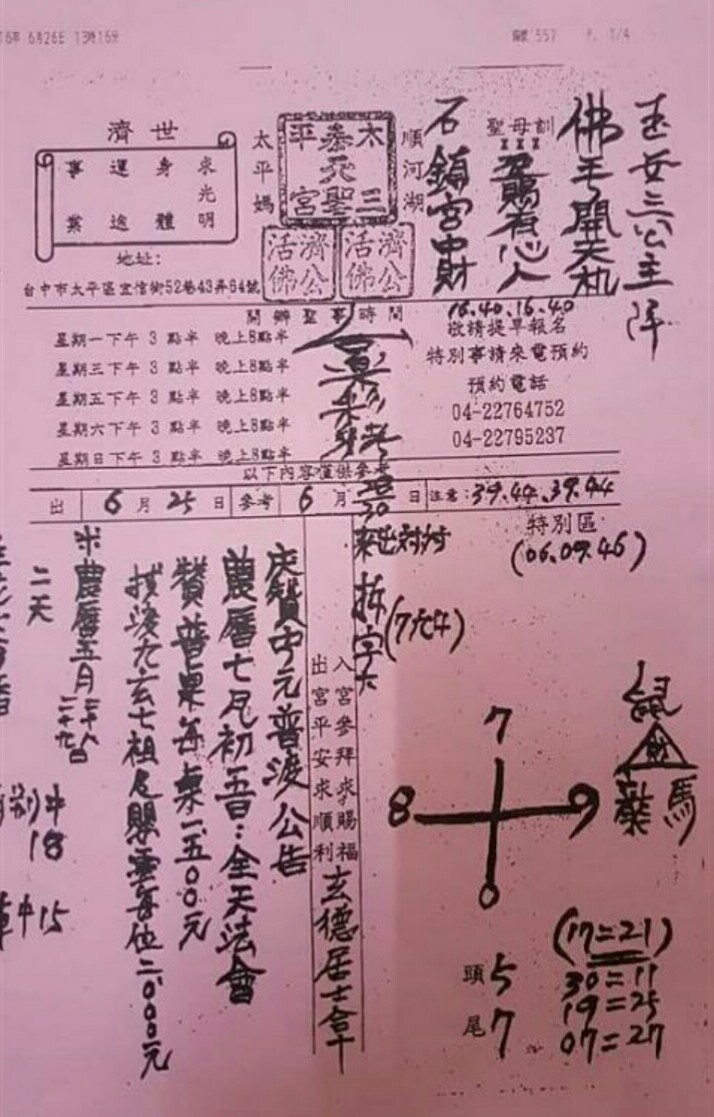 6月26日 13時16分
557 P. 1/4
玉女三公主降
佛手開天机
聖母訓
賜有心人
石鎮宮中財
16.40.16.40
順河湖
太平
泰元宮
三聖
太平媽
濟公活佛
濟公活佛
濟世
求光明
身體
運途
事業
地址:
台中市太平區宜信街52巷43弄64號
開辦聖事時間
星期一下午 3 點半 晚上8點半
星期三下午 3 點半 晚上8點半
星期五下午 3 點半 晚上8點半
星期六下午 3 點半 晚上8點半
星期日下午 3 點半 晚上8點半
敬請提早報名
特別事請來電預約
預約電話
04-22764752
04-22795237
以下內容僅供參考
出 6月25日 參考 6月 日 注意:39.44.39.44
特別區
(06.09.46)
拆字
入宮參拜求賜福
出宮平安求順利
玄德居士拿
慶贊中元普渡公告
農曆七月初五日:全天法會
贊普桌每桌一五00元
拔渡九玄七祖及嬰靈每位二000元
農曆五月二十八日
二十九
二天
18
15
7
8
9
0
鼠
財
龍
馬
(17=21)
30=11
19=25
07=27
頭5
尾7